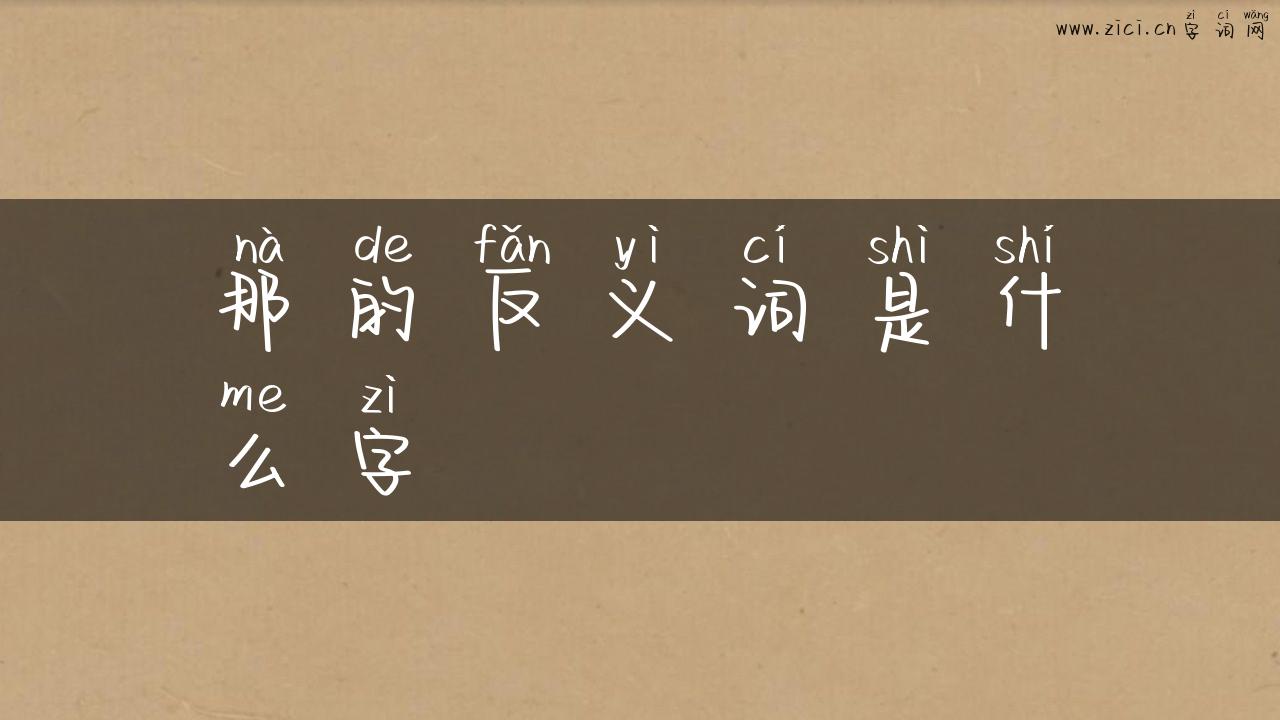 zì cí wǎng
www.zici.cn 字 词 网
nà de fǎn yì cí shì shí
那 的 反 义 词 是 什
me zì
么 字